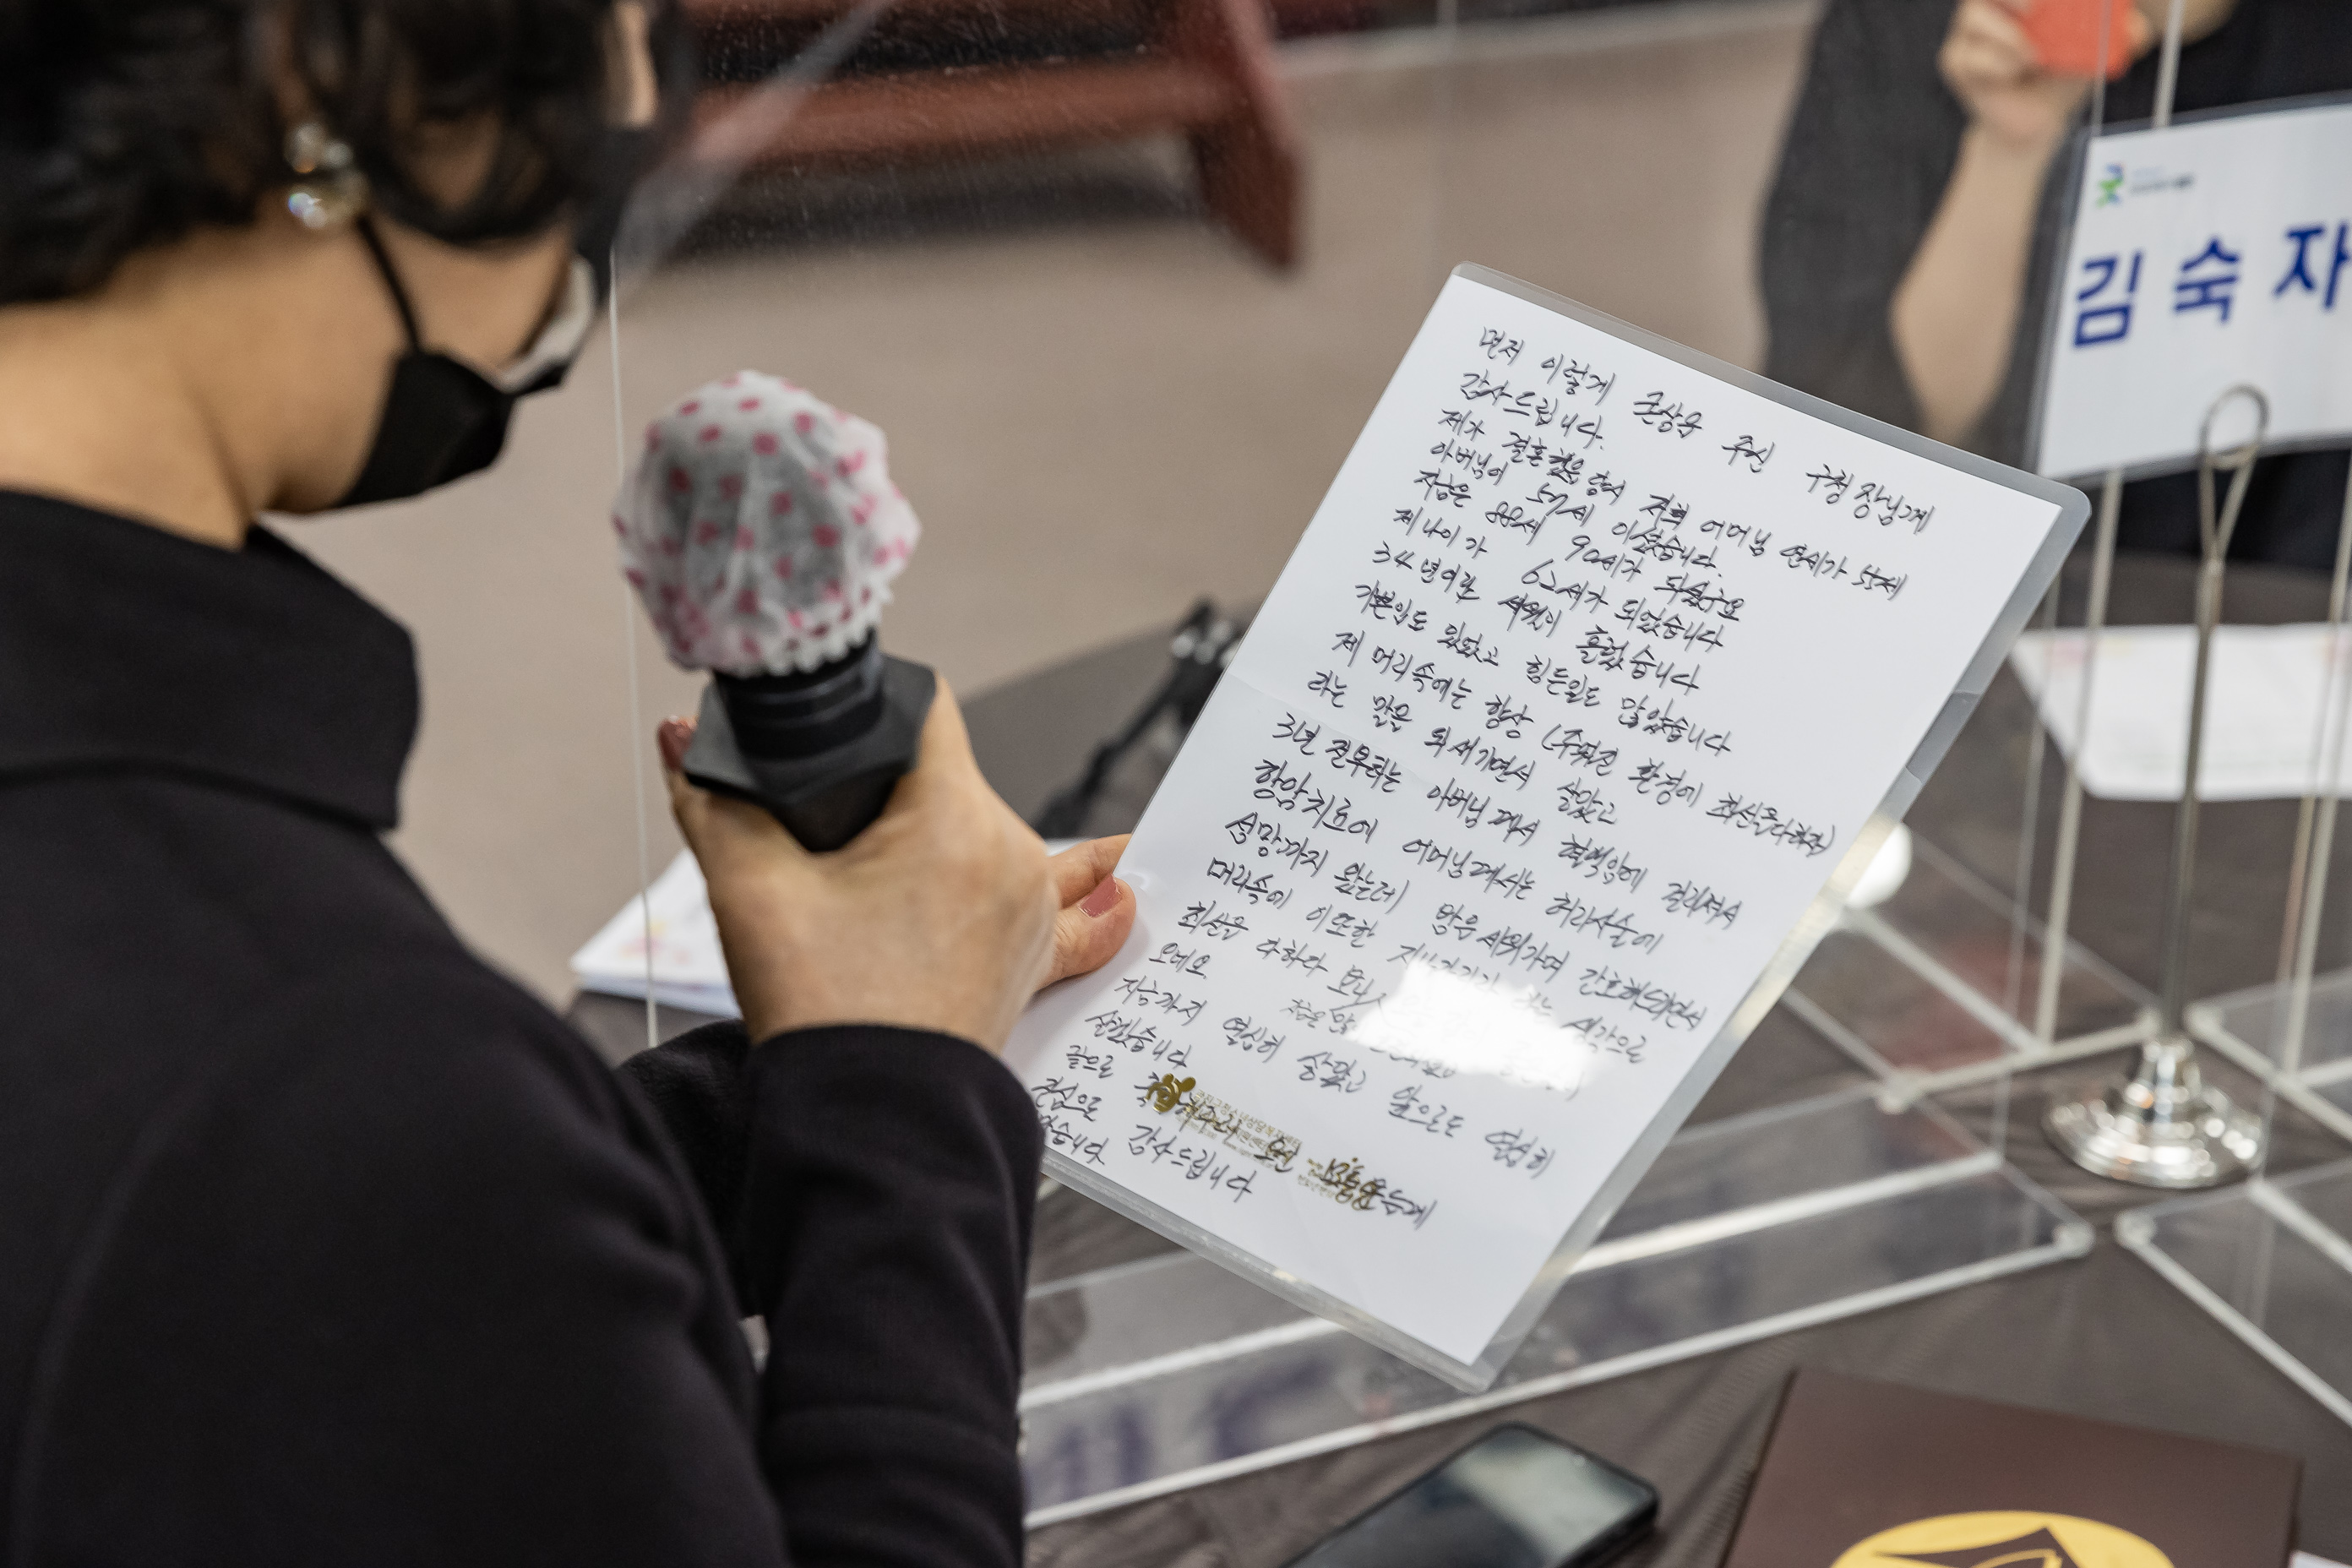 먼저 이렇게 큰상을 주신 구청장님께
감사드립니다.
제가 결혼했을 당시 저희 어머님 연세가 55세
아버님이 57세 이셨습니다.
지금은 88세 90세가 되셨구요
제 나이가 62세가 되었습니다
34년이란 세월이 흘렀습니다
기쁜일도 있었고 힘든일도 많았습니다
제 머리속에는 항상 (주워진 환경에 최선을다하자)
라는 말을 되새기면서 살았고
3년 전부터는 아버님께서 혈액암에 걸리셔서
항암치료에 어머님께서는 허리수술에
섬망까지 왔는데 밤을 새워가며 간호해드리면서
머리속에 이또한 지나가리라 하는 생각으로
최선을 다하다 보니
오네요
지금까지 열심히 살았고 앞으로도 열심히
살겠습니다
끝으로 오신 모든분들께
진심으로 감사드립니다
김숙자